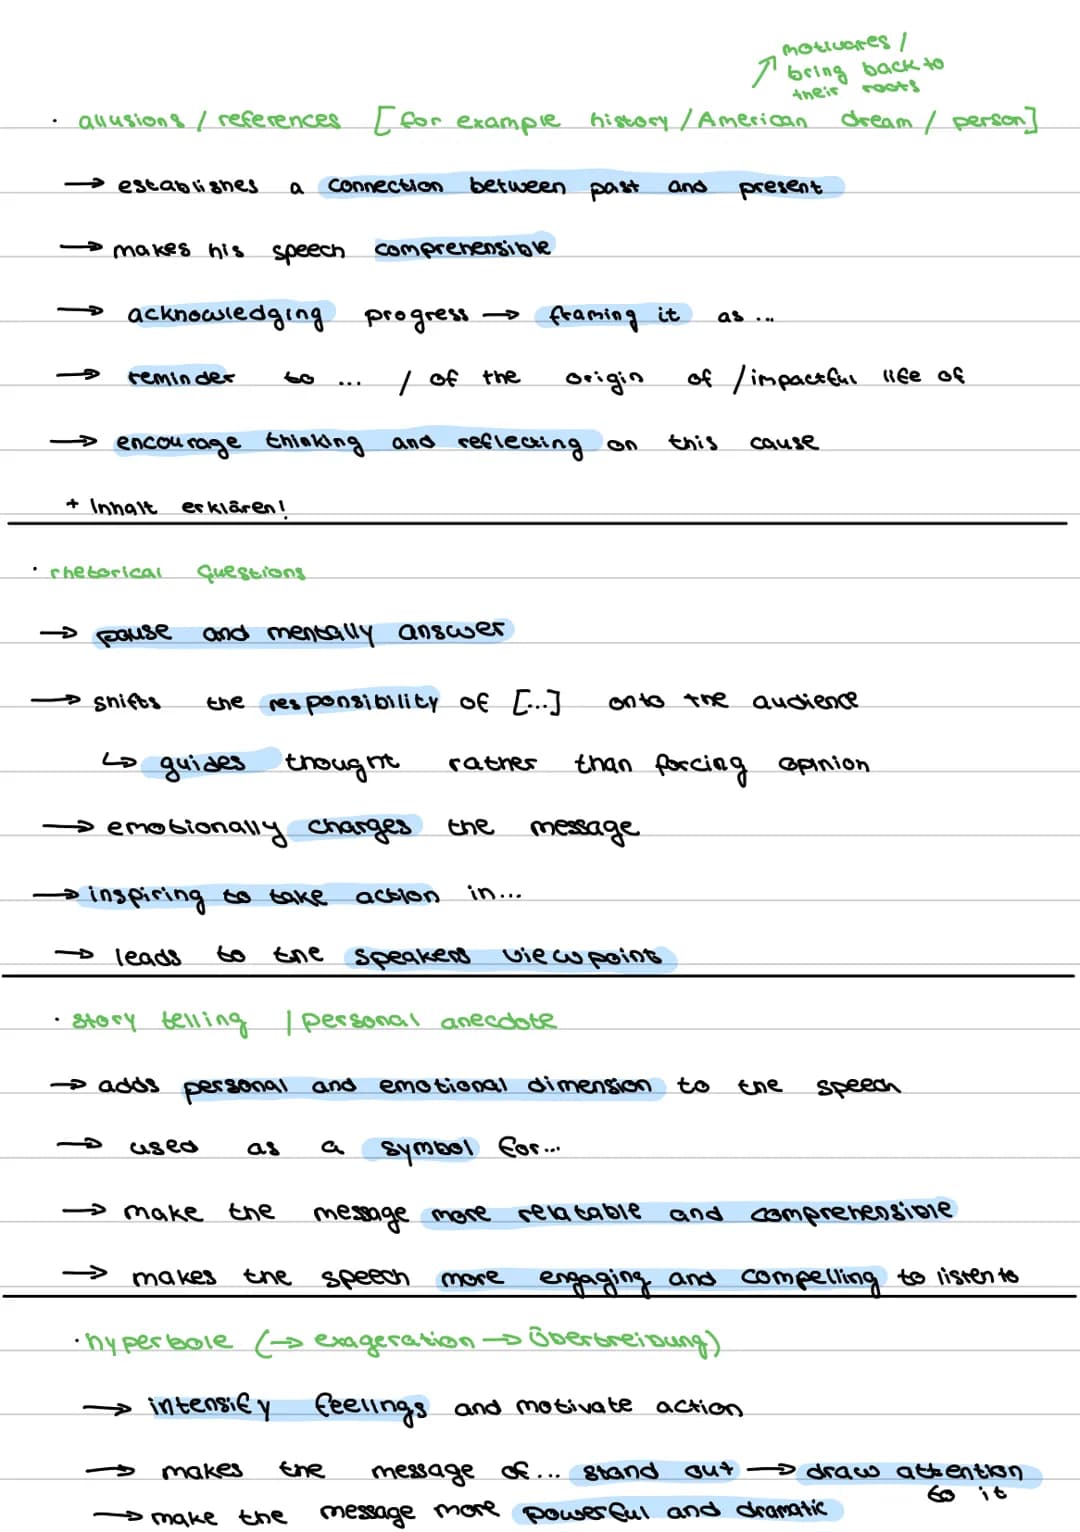 motivates /
bring back to
their roots
· allusions / references [for example history / American dream / person]
→ establishes a connection between past and present
→ makes his speech comprehensible
→ acknowledging progress → framing it as ...
→ reminder to ... / of the origin of / impactful life of
→ encourage thinking and reflecting on this cause
+ Inhalt erklären!
· rhetorical Questions
→ pause and mentally answer
→ shifts the responsibility of [...] onto the audience
↳ guides thought rather than forcing opinion
→ emotionally charges the message
→ inspiring to take action in...
→ leads to the speakers viewpoint
· story telling / personal anecdote
→ adds personal and emotional dimension to the speech
→ used as a symbol for...
→ make the message more relatable and comprehensible
→ makes the speech more engaging and compelling to listen to
· hyperbole (→ exageration → Übertreibung)
→ intensify feelings and motivate action
→ makes the message of... stand out → draw attention
to it
→ make the message more powerful and dramatic